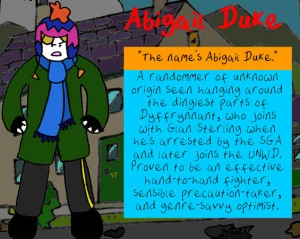 Abigail Duke
"The name's Abigail Duke."
A randommer of unknown
origin seen hanging around
the dingiest parts of
Dyffrynnant, who joins
with Gian Sterling when
he's arrested by the SGA
and later joins the UNWD.
Proven to be an effective
hand-to-hand fighter,
sensible precaution-taker,
and genre-savvy optimist.